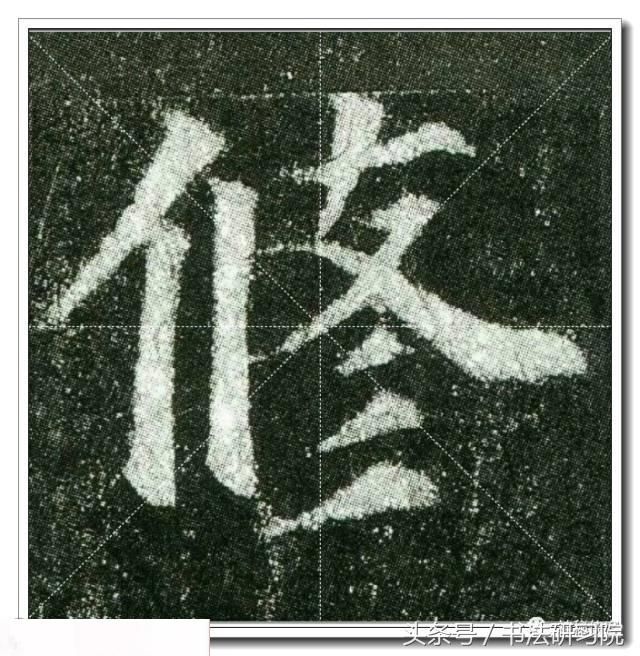 修
头条号 / 书法研习院